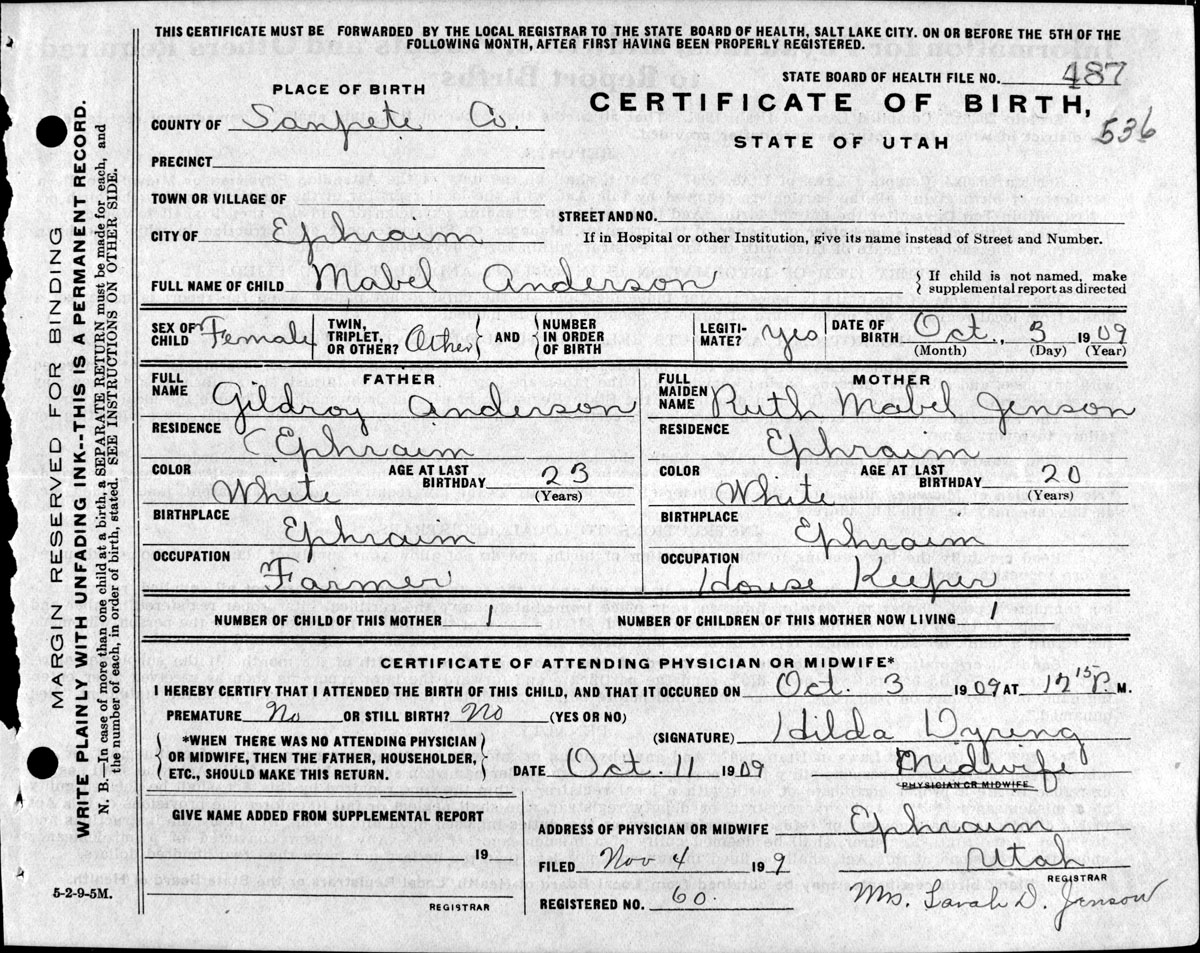 THIS CERTIFICATE MUST BE FORWARDED BY THE LOCAL REGISTRAR TO THE STATE BOARD OF HEALTH, SALT LAKE CITY. ON OR BEFORE THE 5TH OF THE
FOLLOWING MONTH, AFTER FIRST HAVING BEEN PROPERLY REGISTERED.
STATE BOARD OF HEALTH FILE NO. 487
PLACE OF BIRTH
CERTIFICATE OF BIRTH,
536
STATE OF UTAH
COUNTY OF Sanpete Co.
PRECINCT
TOWN OR VILLAGE OF
STREET AND NO.
CITY OF Ephraim
If in Hospital or other Institution, give its name instead of Street and Number.
FULL NAME OF CHILD Mabel Anderson
{ If child is not named, make
supplemental report as directed
SEX OF CHILD Female
TWIN, TRIPLET, OR OTHER? Other } AND { NUMBER IN ORDER OF BIRTH
LEGITIMATE? yes
DATE OF BIRTH Oct., 3 1909
(Month) (Day) (Year)
FATHER
FULL NAME Gildroy Anderson
RESIDENCE Ephraim
COLOR White
AGE AT LAST BIRTHDAY 23
(Years)
BIRTHPLACE Ephraim
OCCUPATION Farmer
MOTHER
FULL MAIDEN NAME Ruth Mabel Jenson
RESIDENCE Ephraim
COLOR White
AGE AT LAST BIRTHDAY 20
(Years)
BIRTHPLACE Ephraim
OCCUPATION House Keeper
NUMBER OF CHILD OF THIS MOTHER 1 NUMBER OF CHILDREN OF THIS MOTHER NOW LIVING 1
CERTIFICATE OF ATTENDING PHYSICIAN OR MIDWIFE*
I HEREBY CERTIFY THAT I ATTENDED THE BIRTH OF THIS CHILD, AND THAT IT OCCURED ON Oct. 3 1909 AT 12 15 P. M.
PREMATURE No OR STILL BIRTH? No (YES OR NO)
(SIGNATURE) Hilda Dyring
*WHEN THERE WAS NO ATTENDING PHYSICIAN
OR MIDWIFE, THEN THE FATHER, HOUSEHOLDER,
ETC., SHOULD MAKE THIS RETURN.
DATE Oct. 11 1909
Midwife
PHYSICIAN OR MIDWIFE.
GIVE NAME ADDED FROM SUPPLEMENTAL REPORT
19
REGISTRAR
ADDRESS OF PHYSICIAN OR MIDWIFE Ephraim
Utah
FILED Nov 4 19 9
REGISTRAR
REGISTERED NO. 60.
Mrs. Sarah D. Jenson
5-2-9-5M.
MARGIN RESERVED FOR BINDING
WRITE PLAINLY WITH UNFADING INK--THIS IS A PERMANENT RECORD.
N. B.—In case of more than one child at a birth, a SEPARATE RETURN must be made for each, and
the number of each, in order of birth, stated. SEE INSTRUCTIONS ON OTHER SIDE.